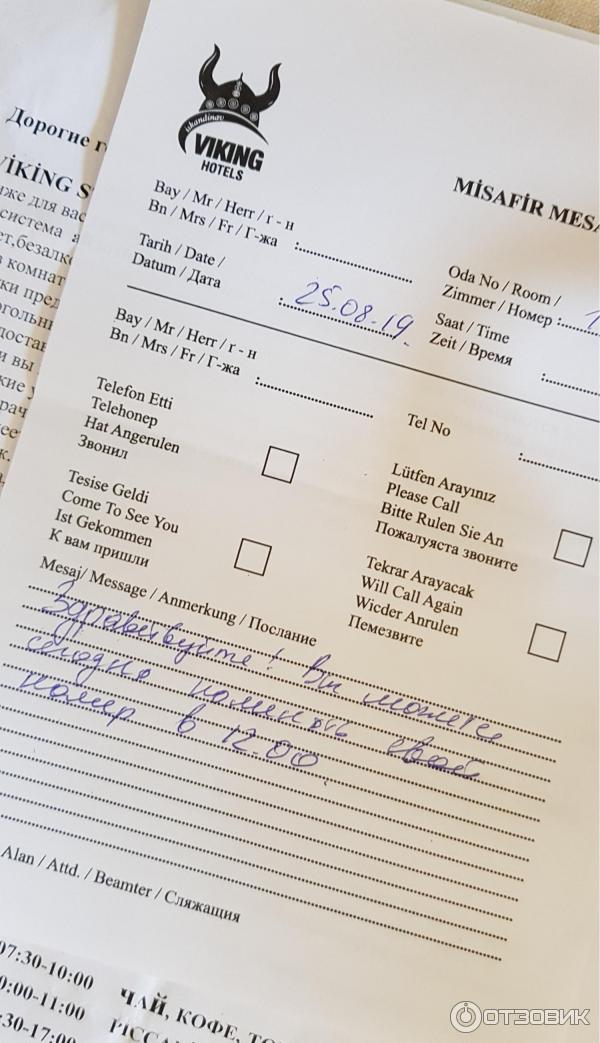 iskandinav
VIKING
HOTELS
Дорогие г
VİKİNG S
MİSAFİR MESA
Bay / Mr / Herr / г - н
Bn / Mrs / Fr / Г-жа :
Oda No / Room /
Zimmer / Номер : 1
Tarih / Date /
Datum / Дата : 25.08.19.
Saat / Time
Zeit / Время :
Bay / Mr / Herr / г - н
Bn / Mrs / Fr / Г-жа :
Tel No :
Telefon Etti
Telehonep
Hat Angerulen
Звонил
Lütfen Arayınız
Please Call
Bitte Rulen Sie An
Пожалуяста звоните
Tesise Geldi
Come To See You
Ist Gekommen
К вам пришли
Tekrar Arayacak
Will Call Again
Wicder Anrulen
Пемезвите
Mesaj/ Message / Anmerkung / Послание
Здравствуйте! Вы можете
сегодня поменять свой
номер в 12.00.
Alan / Attd. / Beamter / Сляжащия
07:30-10:00 ЧАЙ, КОФЕ, ТО
0:00-11:00
:30-17:00
жe для вас
система а
ет,безалко
в комнат
ки пред
гольны
достав
и вы
кие у
рач
еет
к.
ОТЗОВИК